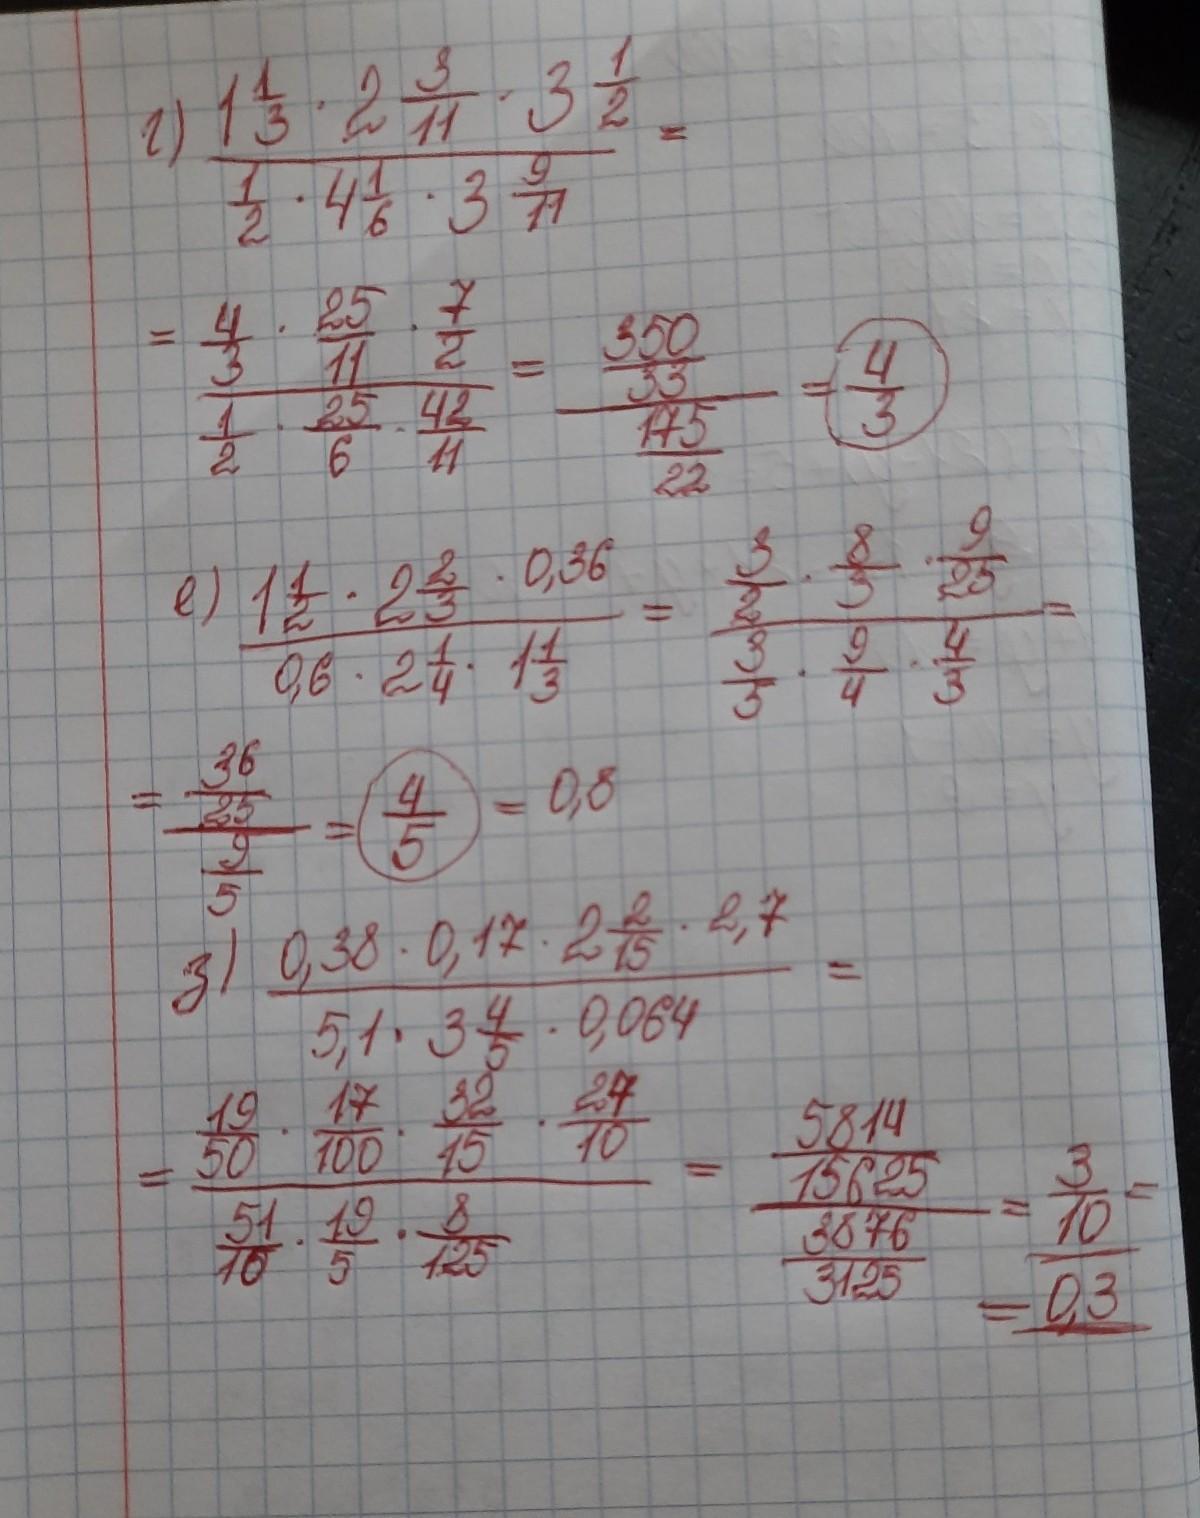 г) (1 1/3 · 2 3/11 · 3 1/2) / (1/2 · 4 1/6 · 3 9/11) =
= (4/3 · 25/11 · 7/2) / (1/2 · 25/6 · 42/11) = (350/33) / (175/22) = 4/3
е) (1 1/2 · 2 2/3 · 0,36) / (0,6 · 2 1/4 · 1 1/3) = (3/2 · 8/3 · 9/25) / (3/5 · 9/4 · 4/3) =
= (36/25) / (9/5) = 4/5 = 0,8
з) (0,38 · 0,17 · 2 2/15 · 2,7) / (5,1 · 3 4/5 · 0,064) =
= (19/50 · 17/100 · 32/15 · 27/10) / (51/10 · 19/5 · 8/125) = (5814/15625) / (3876/3125) = 3/10 =
= 0,3